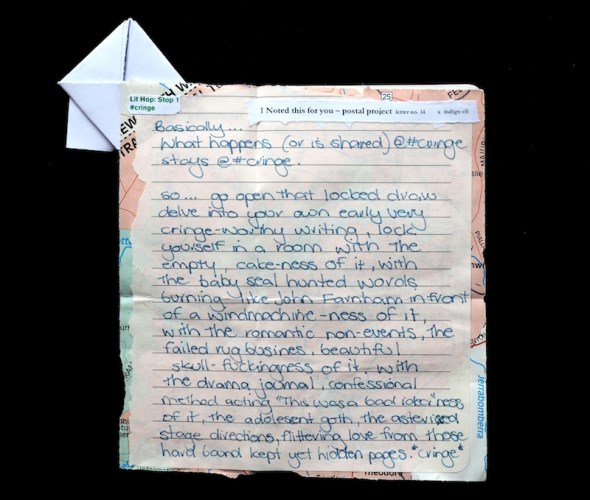 Lit Hop: Stop 1
#cringe
I Noted this for you – postal project letter no. 14 x indigo eli
Basically...
What happens (or is shared) @#cringe
stays @#cringe.
so... go open that locked draw
delve into your own early very
cringe-worthy writing, lock
yourself in a room with the
empty, cake-ness of it, with
the baby seal hunted words
burning like John Farnham in front
of a windmachine-ness of it,
with the romantic non-events, the
failed rug busines, beautiful
skull-fuckingness of it, with
the drama journal, confessional
method acting "This was a bad idea"ness
of it, the adolesent goth, the asterixed
stage directions, flittering love from those
hard bound kept yet hidden pages. *cringe*
25
Jerrabomberra